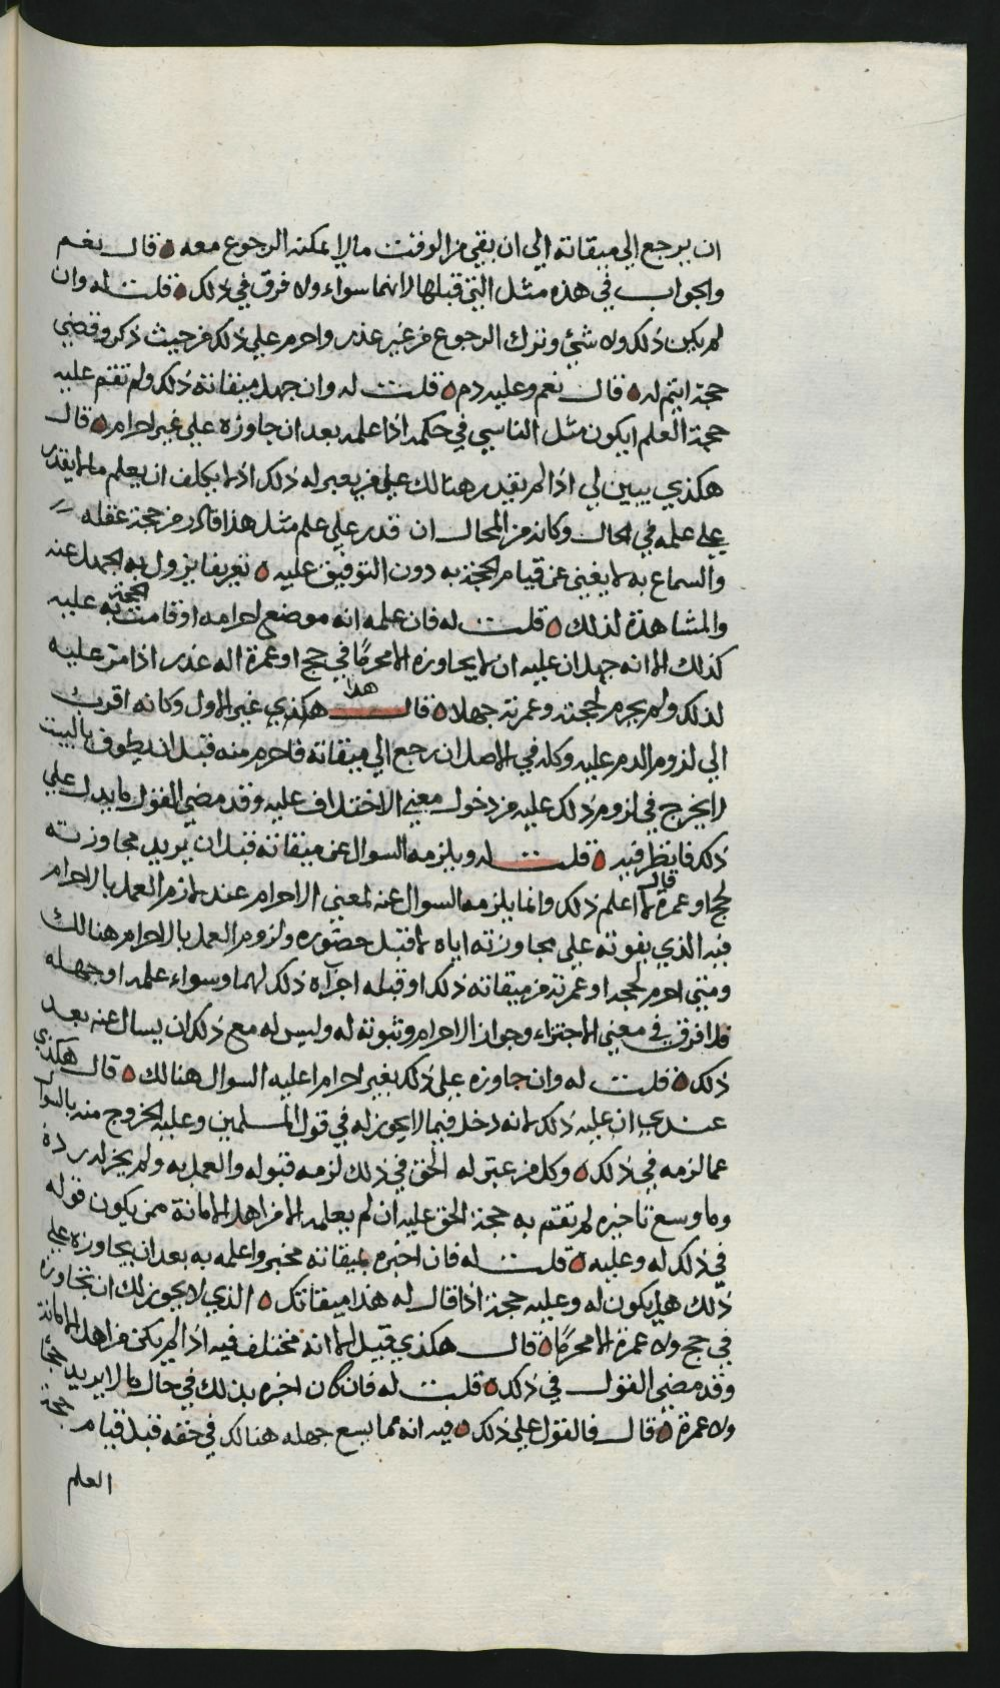 ان يرجع الي ميقاته الي ان بقي من الوقت ما لا يمكنه الرجوع معه قال نعم
والجواب في هذه مثل التي قبلها لانهما سواء ولا فرق في ذلك قلت له وان
لم يكن ذلك ولا شئ وترك الرجوع من غير عذر واحرم علي ذلك من حيث ذكر وقضي
حجة ايتم له قال نعم وعليه دم قلت له وان جهل ميقاتة ذلك ولم تقم عليه
حجة العلم ايكون مثل الناسي في حكمه اذا علمه بعد ان جاوزه علي غير احرام قال
هكذي يبين لي اذا لم يقدر هنالك علي من يعبر له ذلك اذ لا يكلف ان يعلم ما لا يقدر
علي علمه في الحال وكانه من المحال ان قدر علي علم مثل هذا من حجة عقله
والسماع به لا يغني عن قيام الحجة به دون التوفيق عليه تعريفا يزول به الجهل عنه
والمشاهدة لذلك قلت له فان علمه انه موضع احرامه او قامت به الحجة عليه
كذلك الا انه جهل ان عليه ان لا يجاوزه الا محرمًا في حج او عمرة اله عذر اذا مر عليه
لذلك ولم يحرم لحجته وعمرته جهلا قال هذا هكذي غير الاول وكانه اقرب
الي لزوم الدم عليه وكله في الاصل ان رجع الي ميقاتة فاحرم منه قبل ان يطوف بالبيت
لا يخرج في لزوم ذلك عليه من دخول معني الاختلاف عليه وقد مضي القول ما يدل علي
ذلك فانظر فيه قلت له ويلزمه السوال عن ميقاتة قبل ان يريد مجاوزته
لحج او عمرة قال لا اعلم ذلك وانما يلزمه السوال عنه لمعني الاحرام عند لازم العمل بالاحرام
فيه الذي يفوته علي مجاوزته اياه لا قبل حضوره ولزوم العمل بالاحرام هنالك
ومتي احرم لحجه او عمرته من ميقاته ذلك او قبله اجزاه ذلك لهما وسواء علمه او جهله
فلا فرق في معني الاجتزاء وجواز الاحرام وثبوتة له وليس له مع ذلك ان يسال عنه بعد
ذلك قلت له وان جاوزه علي ذلك بغير احرام اعليه السوال هنالك قال هكذي
عندي ان عليه ذلك لانه دخل فيما لا يجوز له في قول المسلمين وعليه الخروج منه بالسوال
عما لزمه في ذلك وكل من عبر له الحق في ذلك لزمه قبوله والعمل به ولم يجز له رده
وما وسع تاخيره لم تقم به حجة الحق عليه ان لم يعلمه الا من اهل الامانة ممن يكون قوله
في ذلك له وعليه قلت له فان اخبره بميقاتة مخبر واعلمه به بعد ان يجاوزه علي
ذلك هل يكون له وعليه حجة اذا قال له هذا ميقاتك الذي لا يجوز لك ان تجاوزه
في حج ولا عمرة الا محرمًا قال هكذي قيل الا انه مختلف فيه اذا لم يكن من اهل الامانة
وقد مضي القول في ذلك قلت له فان كان اخبره بذلك في حال ما لا يريد حجًا
ولا عمرة قال فالقول علي ذلك فيه انه مما يسع جهله هنالك في حقه قبل قيام حجة
العلم